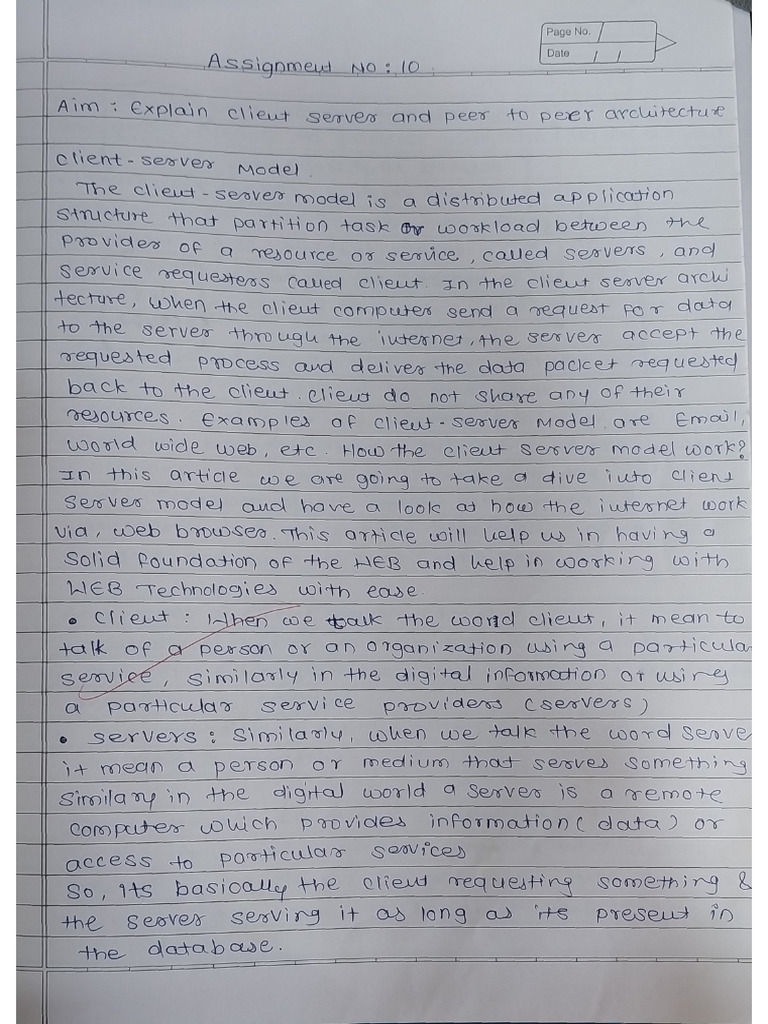 Page No.
Date / /
Assignment NO : 10
Aim : Explain client server and peer to peer architecture
client - server Model.
The client - server model is a distributed application
structure that partition task or workload between the
provider of a resource or service, called servers, and
service requesters called client. In the client server archi
tecture, when the client computer send a request for data
to the server through the internet, the server accept the
requested process and deliver the data packet requested
back to the client. client do not share any of their
resources. Examples of client - server Model are Email,
World wide web, etc. How the client server model work?
In this article we are going to take a dive into client
server model and have a look at how the internet work
via, web browser. This article will help us in having a
Solid foundation of the WEB and help in working with
WEB Technologies with ease.
• client : When we talk the word client, it mean to
talk of a person or an organization using a particula
service, similarly in the digital information or using
a particular service providers (servers)
• servers : Similarly, when we talk the word serve
it mean a person or medium that serves something
similary in the digital world a server is a remote
computer which provides information (data) or
access to particular services
So, its basically the client requesting something &
the server serving it as long as its present in
the database.